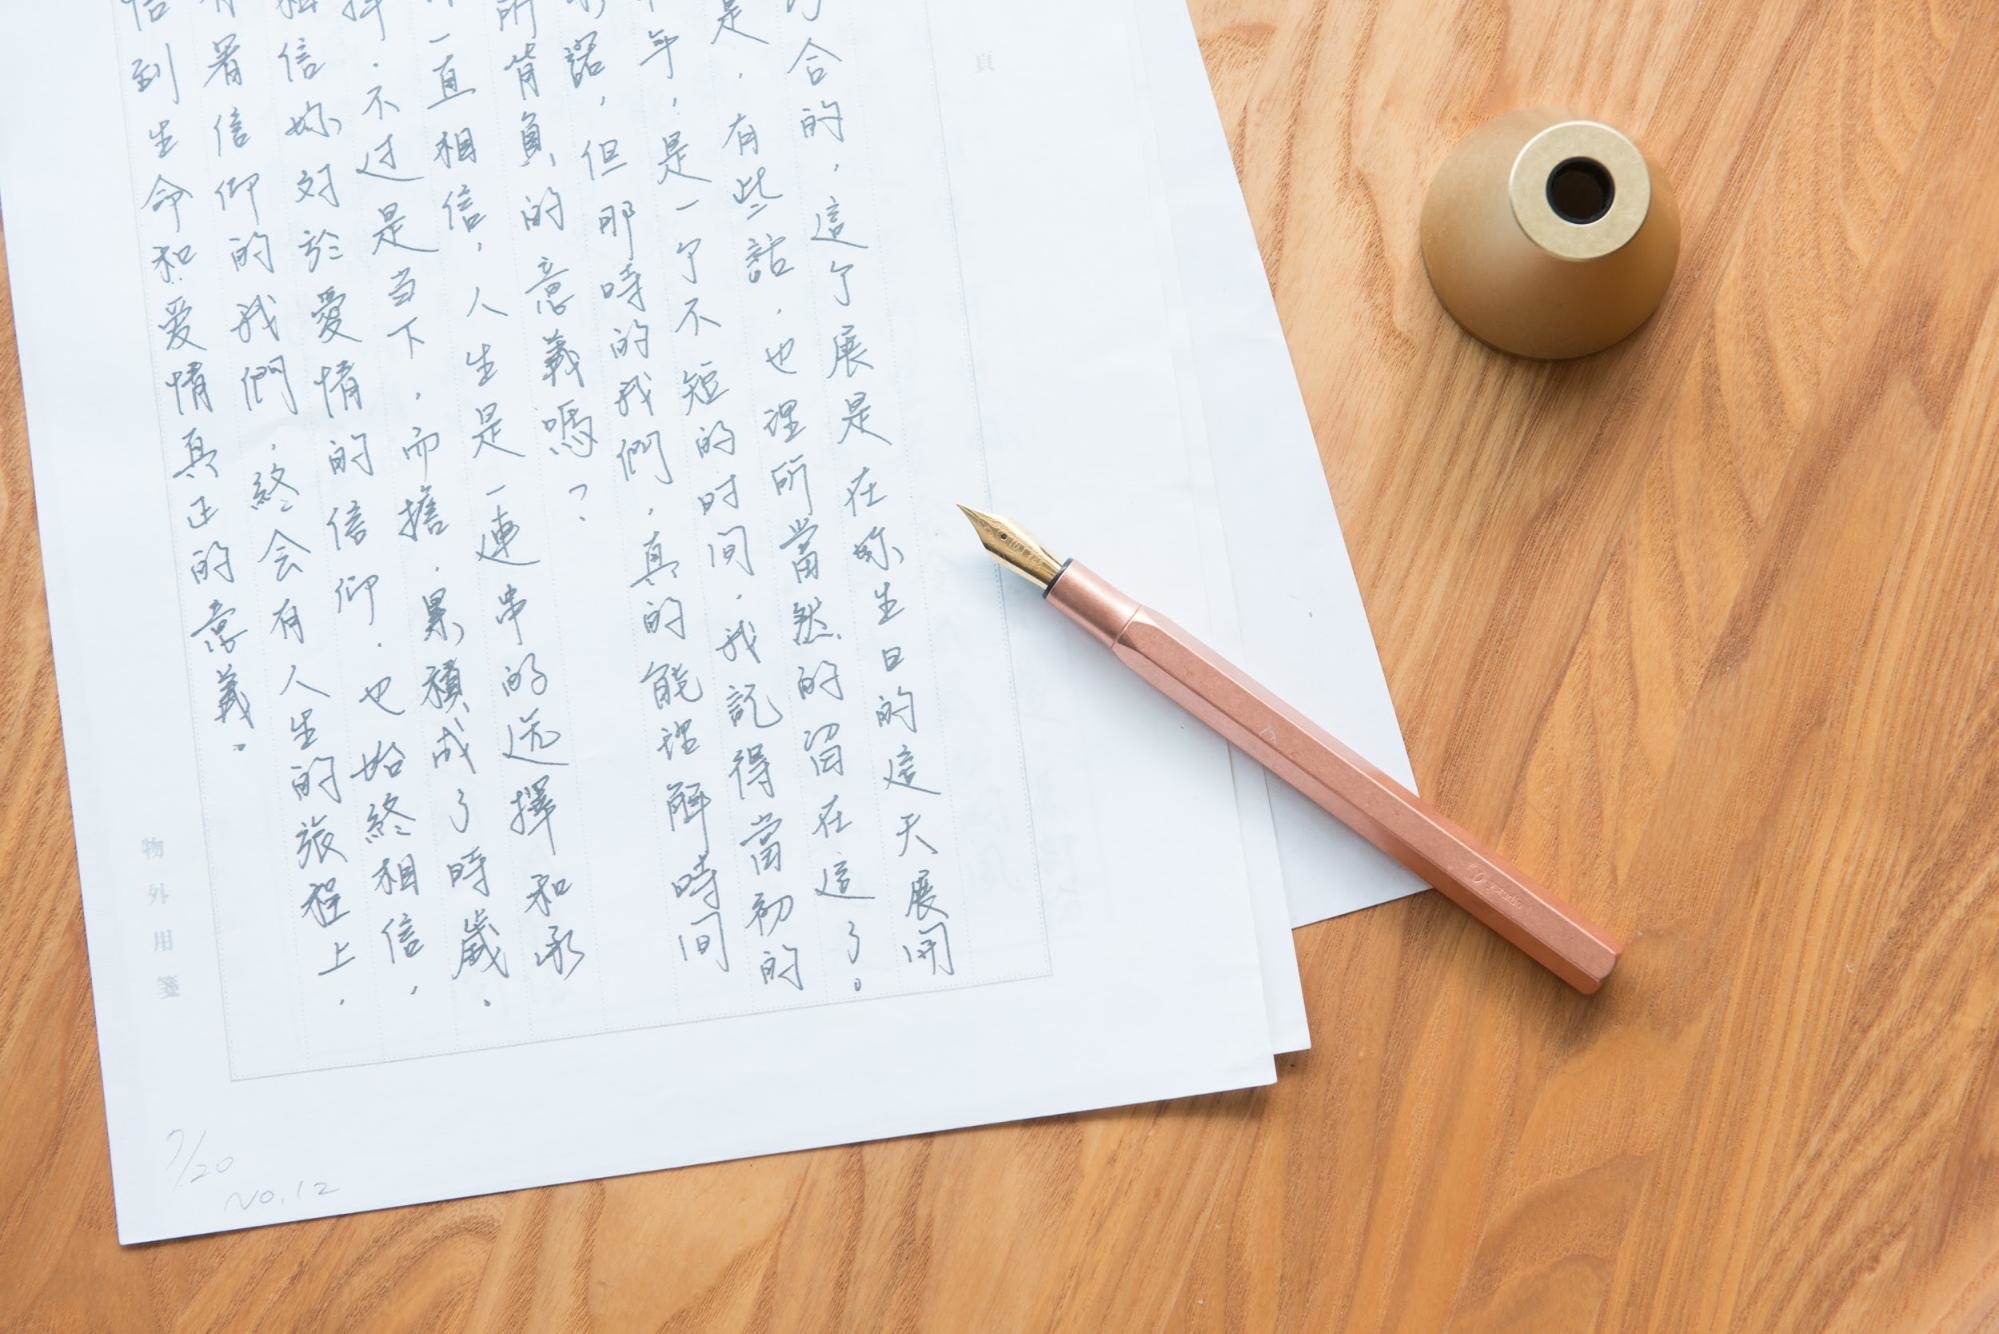 頁
合的，這个展是在妳生日的這天展開
是，有些話，也理所當然的留在這了。
年，是一个不短的时间，我記得當初的
諾，但那時的我們，真的能理解時間
所背負的意義嗎？
一直相信，人生是一連串的选擇和承
擇，不过是当下，而擔，累積成了時歲，
信妳对於愛情的信仰，也始終相信，
有著信仰的我們，終会有人生的旅程上，
悟到生命和爱情真正的意義。
物外用箋
7/20
NO.12